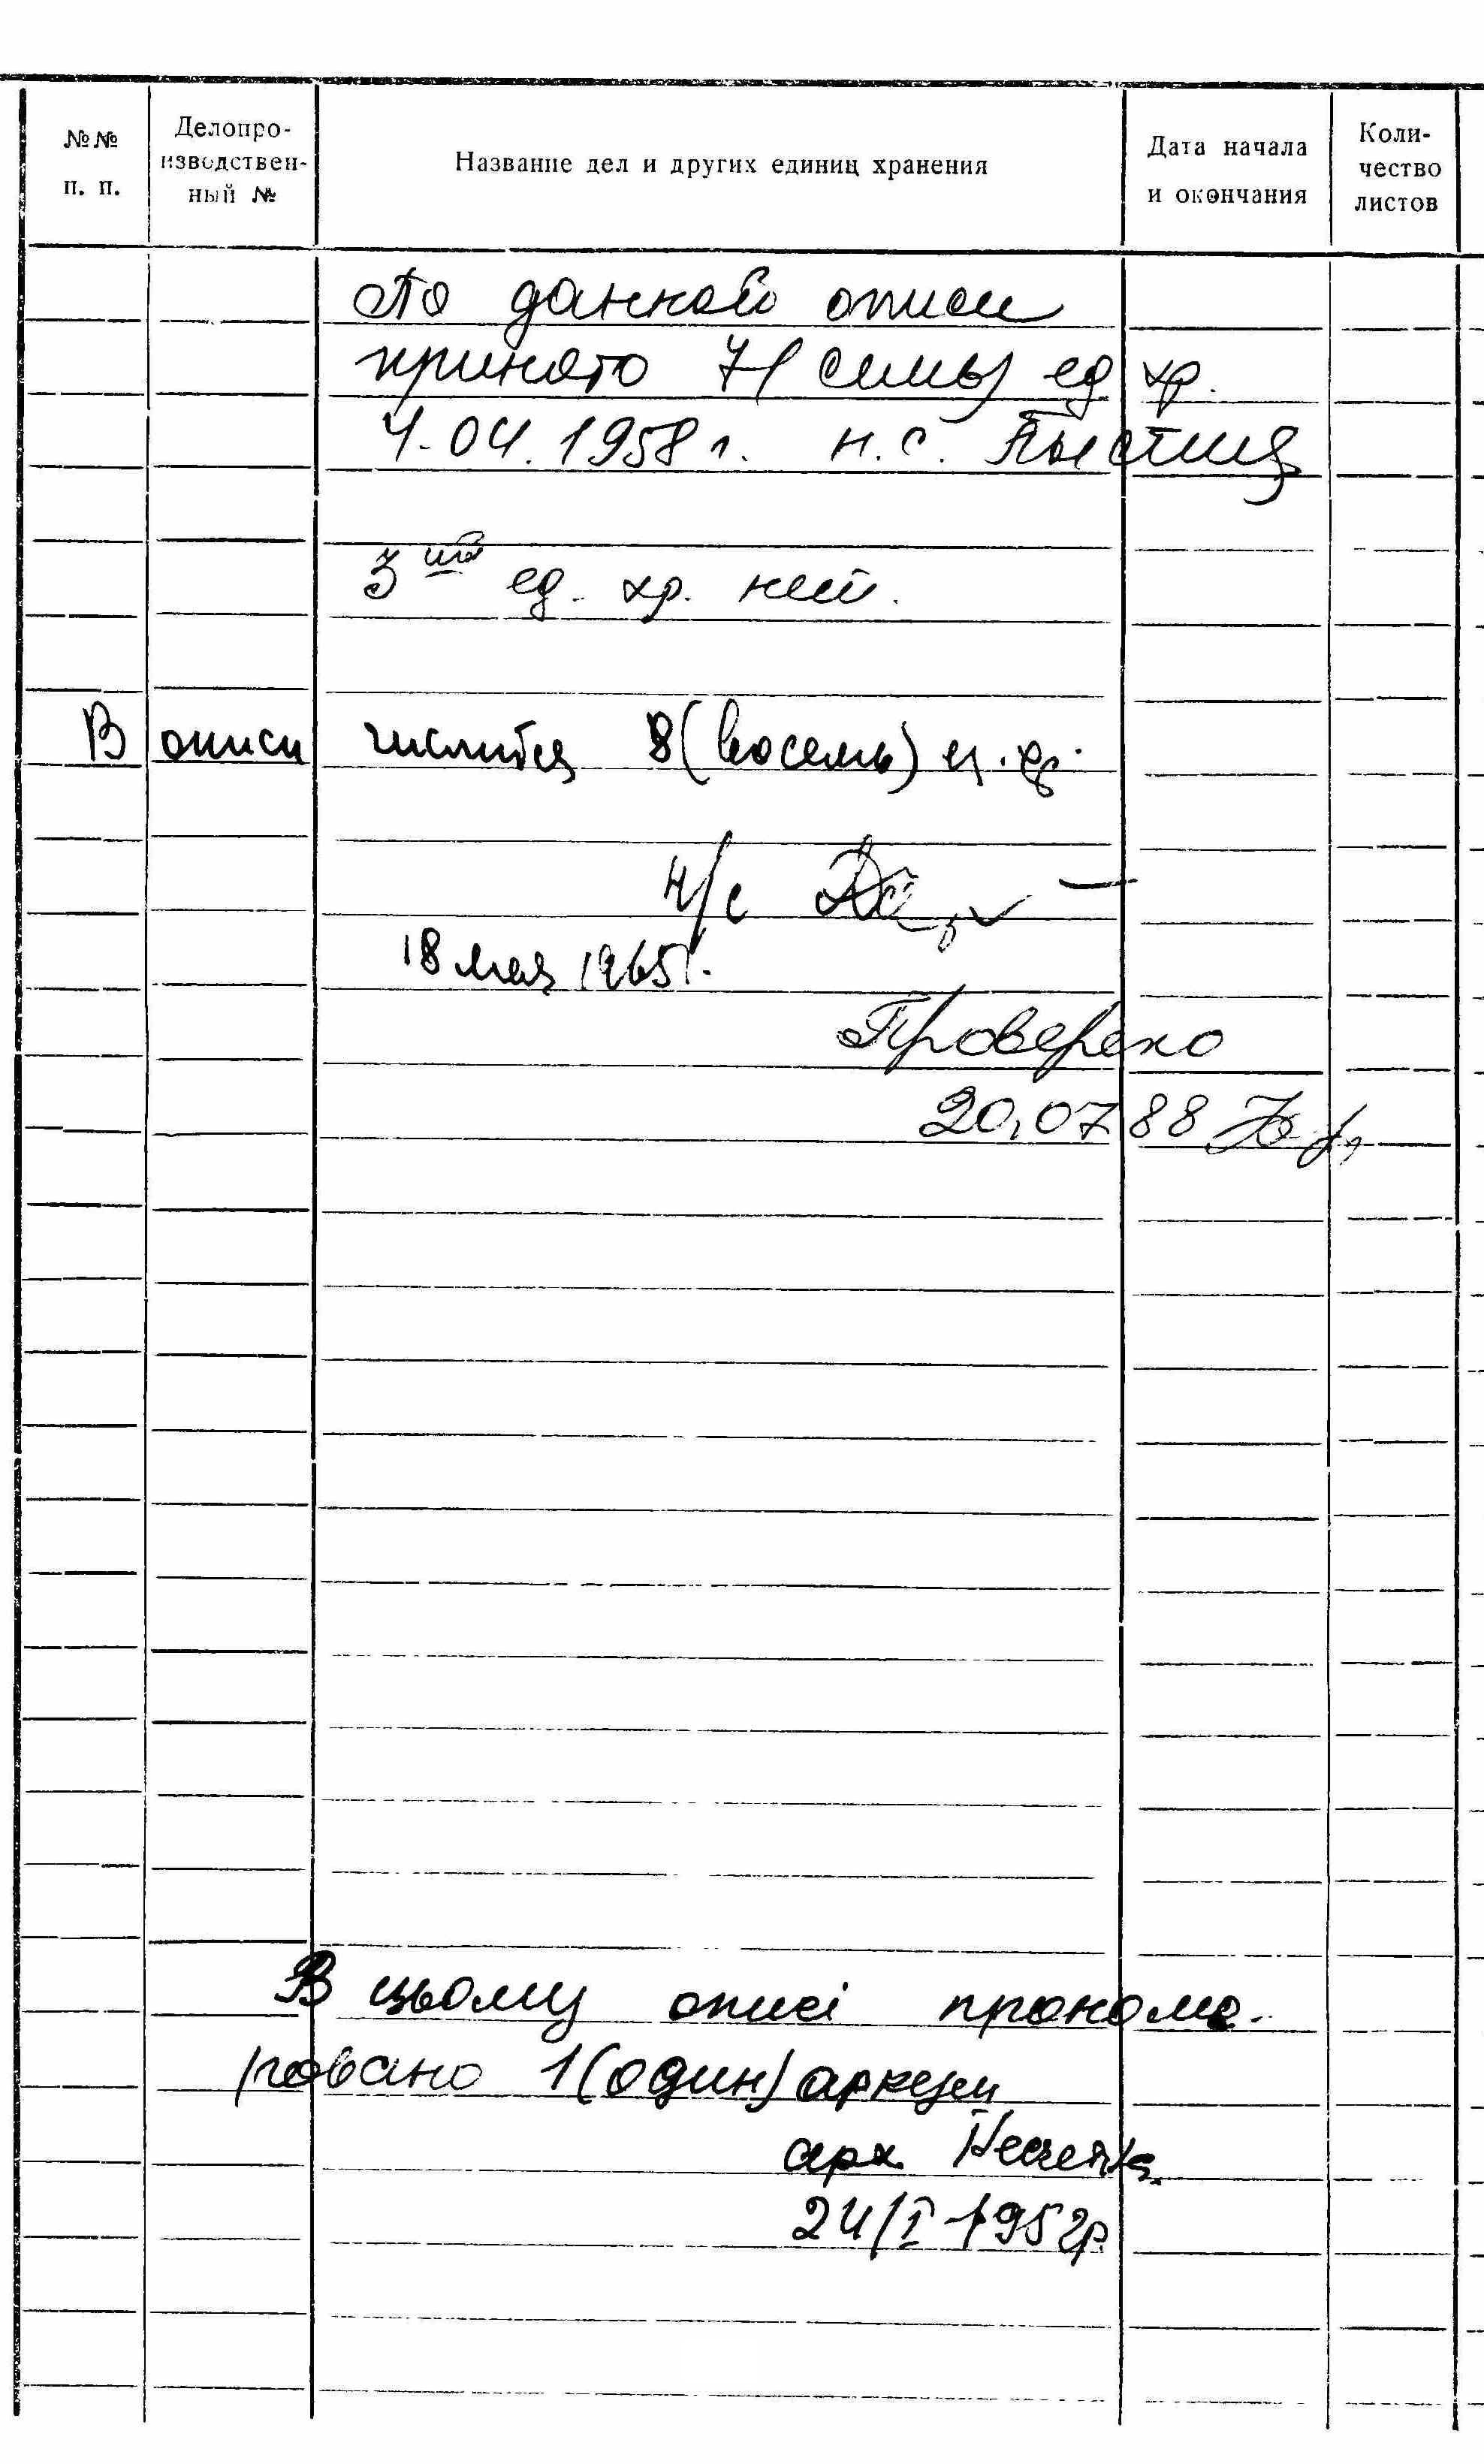 №№ п. п.
Делопро-
изводствен-
ный №
Название дел и других единиц хранения
Дата начала
и окончания
Коли-
чество
листов
По данной описи
принято 7 (семь) ед хр.
4.04.1958 г. н.с.
3 ед. хр. нет.
В описи числится 8 (восемь) ед. хр.
н/с
18 мая 1965 г.
Проверено
20.07 88
В цьому описі прономе-
ровано 1 (один) аркуш
арх
24/I-1952р.